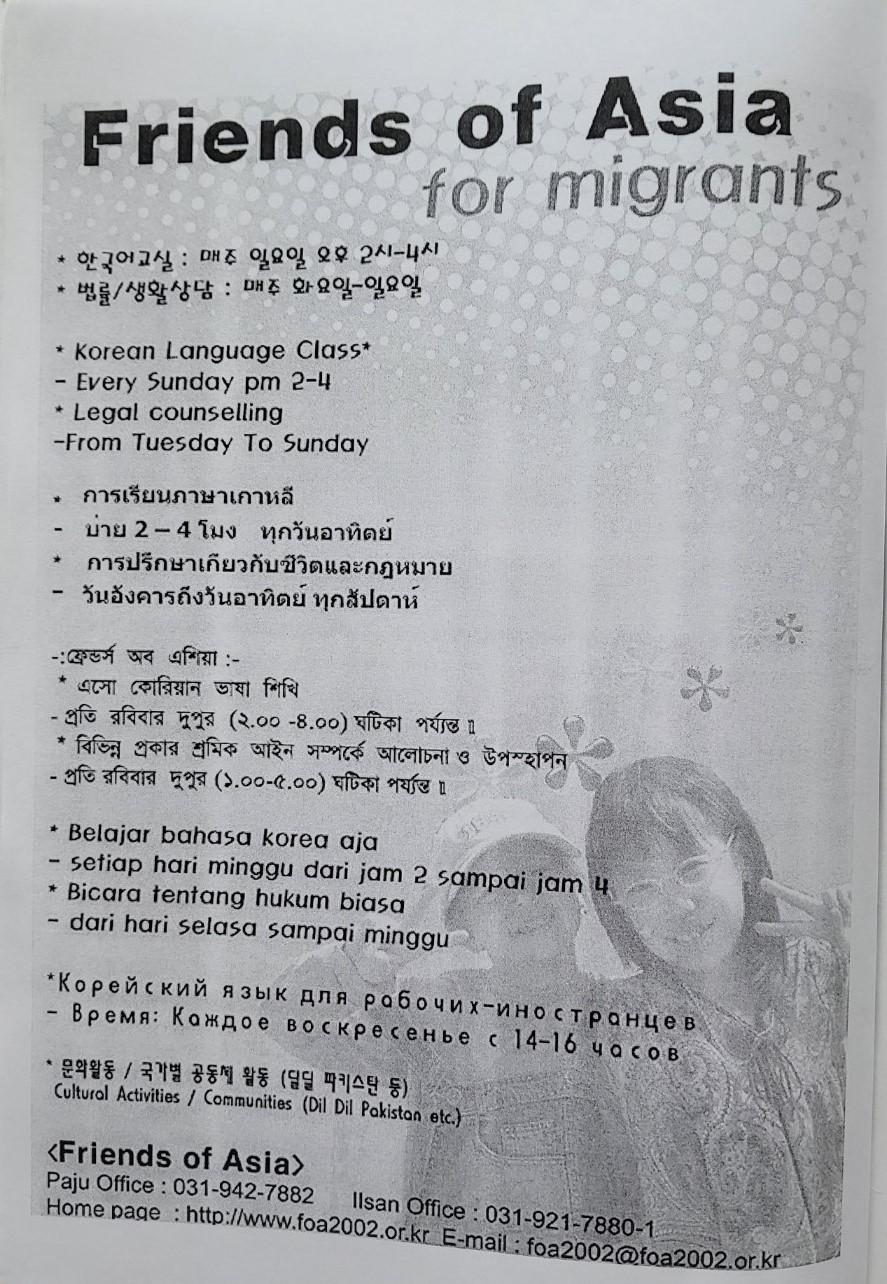 Friends of Asia
for migrants
* 한국어교실 : 매주 일요일 오후 2시-4시
* 법률/생활상담 : 매주 화요일-일요일
* Korean Language Class*
- Every Sunday pm 2-4
* Legal counselling
-From Tuesday To Sunday
* การเรียนภาษาเกาหลี
- บ่าย 2 – 4 โมง ทุกวันอาทิตย์
* การปรึกษาเกี่ยวกับชีวิตและกฎหมาย
- วันอังคารถึงวันอาทิตย์ ทุกสัปดาห์
-:ফ্রেন্ডর্স অব এশিয়া :-
* এসো কোরিয়ান ভাষা শিখি
- প্রতি রবিবার দুপুর (২.০০ -৪.০০) ঘটিকা পর্য্যন্ত ॥
* বিভিন্ন প্রকার শ্রমিক আইন সম্পর্কে আলোচনা ও উপস্হাপন
- প্রতি রবিবার দুপুর (১.০০-৫.০০) ঘটিকা পর্য্যন্ত ॥
* Belajar bahasa korea aja
- setiap hari minggu dari jam 2 sampai jam 4
* Bicara tentang hukum biasa
- dari hari selasa sampai minggu
*Корейский язык для рабочих-иностранцев
- Время: Каждое воскресенье с 14-16 часов
* 문화활동 / 국가별 공동체 활동 (딜딜 파키스탄 등)
Cultural Activities / Communities (Dil Dil Pakistan etc.)
<Friends of Asia>
Paju Office : 031-942-7882 Ilsan Office : 031-921-7880-1
Home page : http://www.foa2002.or.kr E-mail : foa2002@foa2002.or.kr